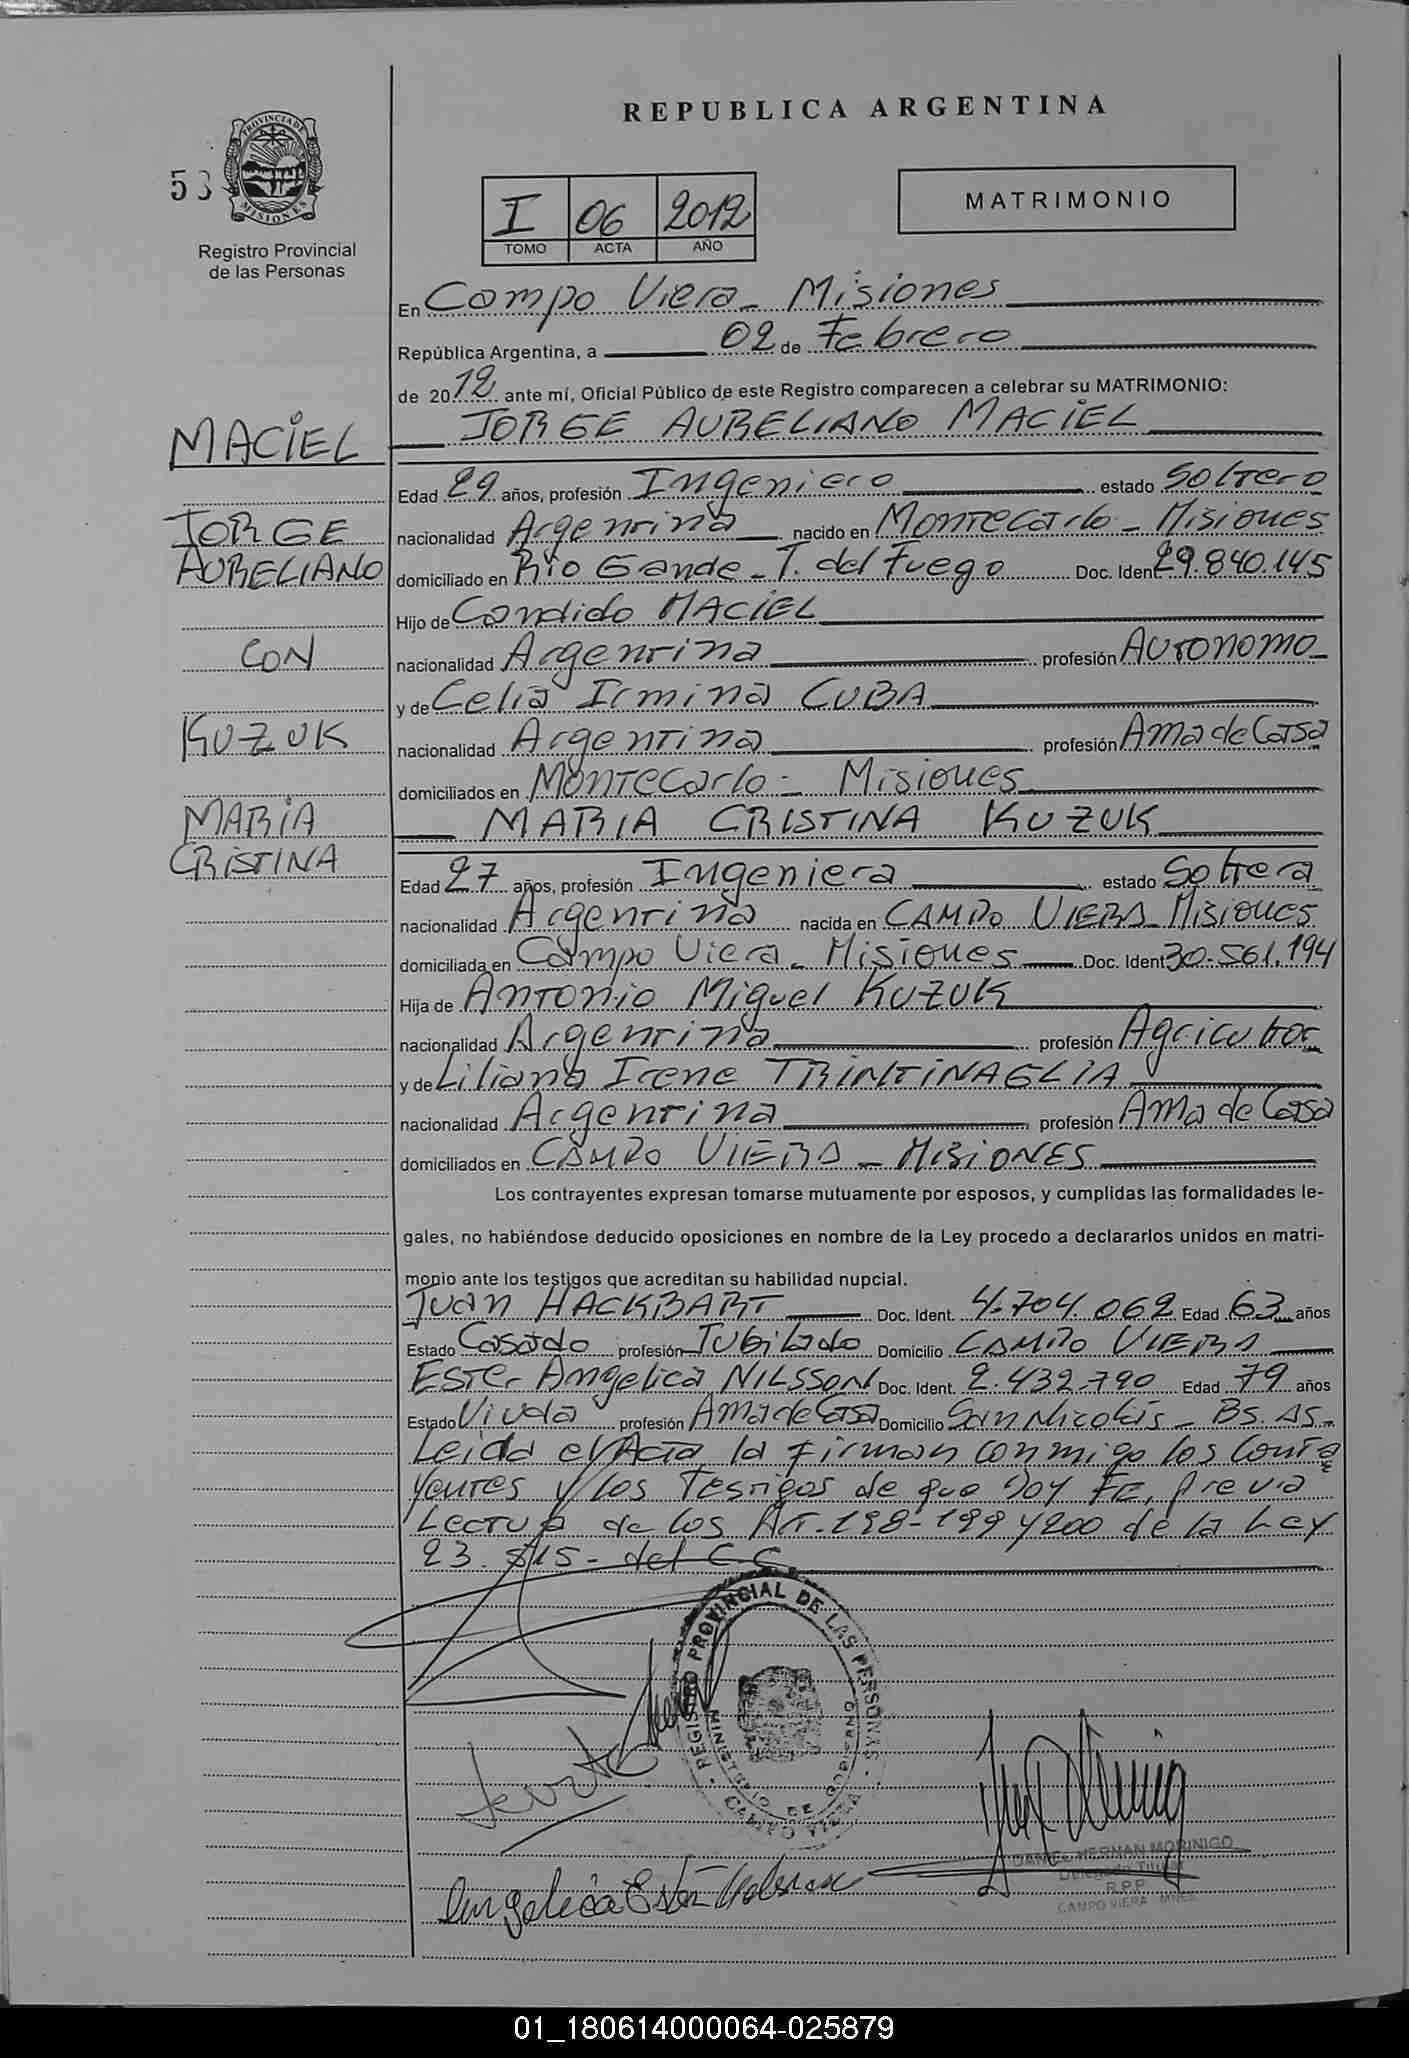 REPUBLICA ARGENTINA
53
PROVINCIA DE MISIONES
Registro Provincial
de las Personas
I 06 2012
TOMO ACTA AÑO
MATRIMONIO
En Campo Viera - Misiones
República Argentina, a 02 de Febrero
de 2012 ante mí, Oficial Público de este Registro comparecen a celebrar su MATRIMONIO:
MACIEL
JORGE AURELIANO MACIEL
Edad 29 años, profesión Ingeniero estado Soltero
JORGE
nacionalidad Argentina nacido en Montecarlo - Misiones
AURELIANO
domiciliado en Rio Grande - T. del Fuego Doc. Ident. 29.840.145
Hijo de Candido MACIEL
CON
nacionalidad Argentina profesión Autonomo
y de Celia Irmina CUBA
KUZUK
nacionalidad Argentina profesión Ama de Casa
domiciliados en Montecarlo - Misiones
MARIA
MARIA CRISTINA KUZUK
CRISTINA
Edad 27 años, profesión Ingeniera estado Soltera
nacionalidad Argentina nacida en CAMPO VIERA - Misiones
domiciliada en Campo Viera - Misiones Doc. Ident 30.561.194
Hija de Antonio Miguel KUZUK
nacionalidad Argentina profesión Agricultor
y de Liliana Irene TRINTINAGLIA
nacionalidad Argentina profesión Ama de Casa
domiciliados en CAMPO VIERA - MISIONES
Los contrayentes expresan tomarse mutuamente por esposos, y cumplidas las formalidades le-
gales, no habiéndose deducido oposiciones en nombre de la Ley procedo a declararlos unidos en matri-
monio ante los testigos que acreditan su habilidad nupcial.
Juan HACKBART Doc. Ident. 4.704.062 Edad 63 años
Estado Casado profesión Jubilado Domicilio CAMPO VIERA
Ester Angelica NILSSON Doc. Ident. 2.432.790 Edad 79 años
Estado Viuda profesión Ama de Casa Domicilio San Nicolás - Bs. As.
Leida el Acta, la firman conmigo los contra
yentes y los Testigos de que Doy Fe, previa
Lectura de los Art. 198-199 y 200 de la Ley
23.515- del C.C.
REGISTRO PROVINCIAL DE LAS PERSONAS
MINISTERIO DE GOBIERNO
CAMPO VIERA
Angelica Ester
DANIEL HERNAN MORINIGO
Delegado Titular
R.P.P.
CAMPO VIERA - MNES.
01_180614000064-025879